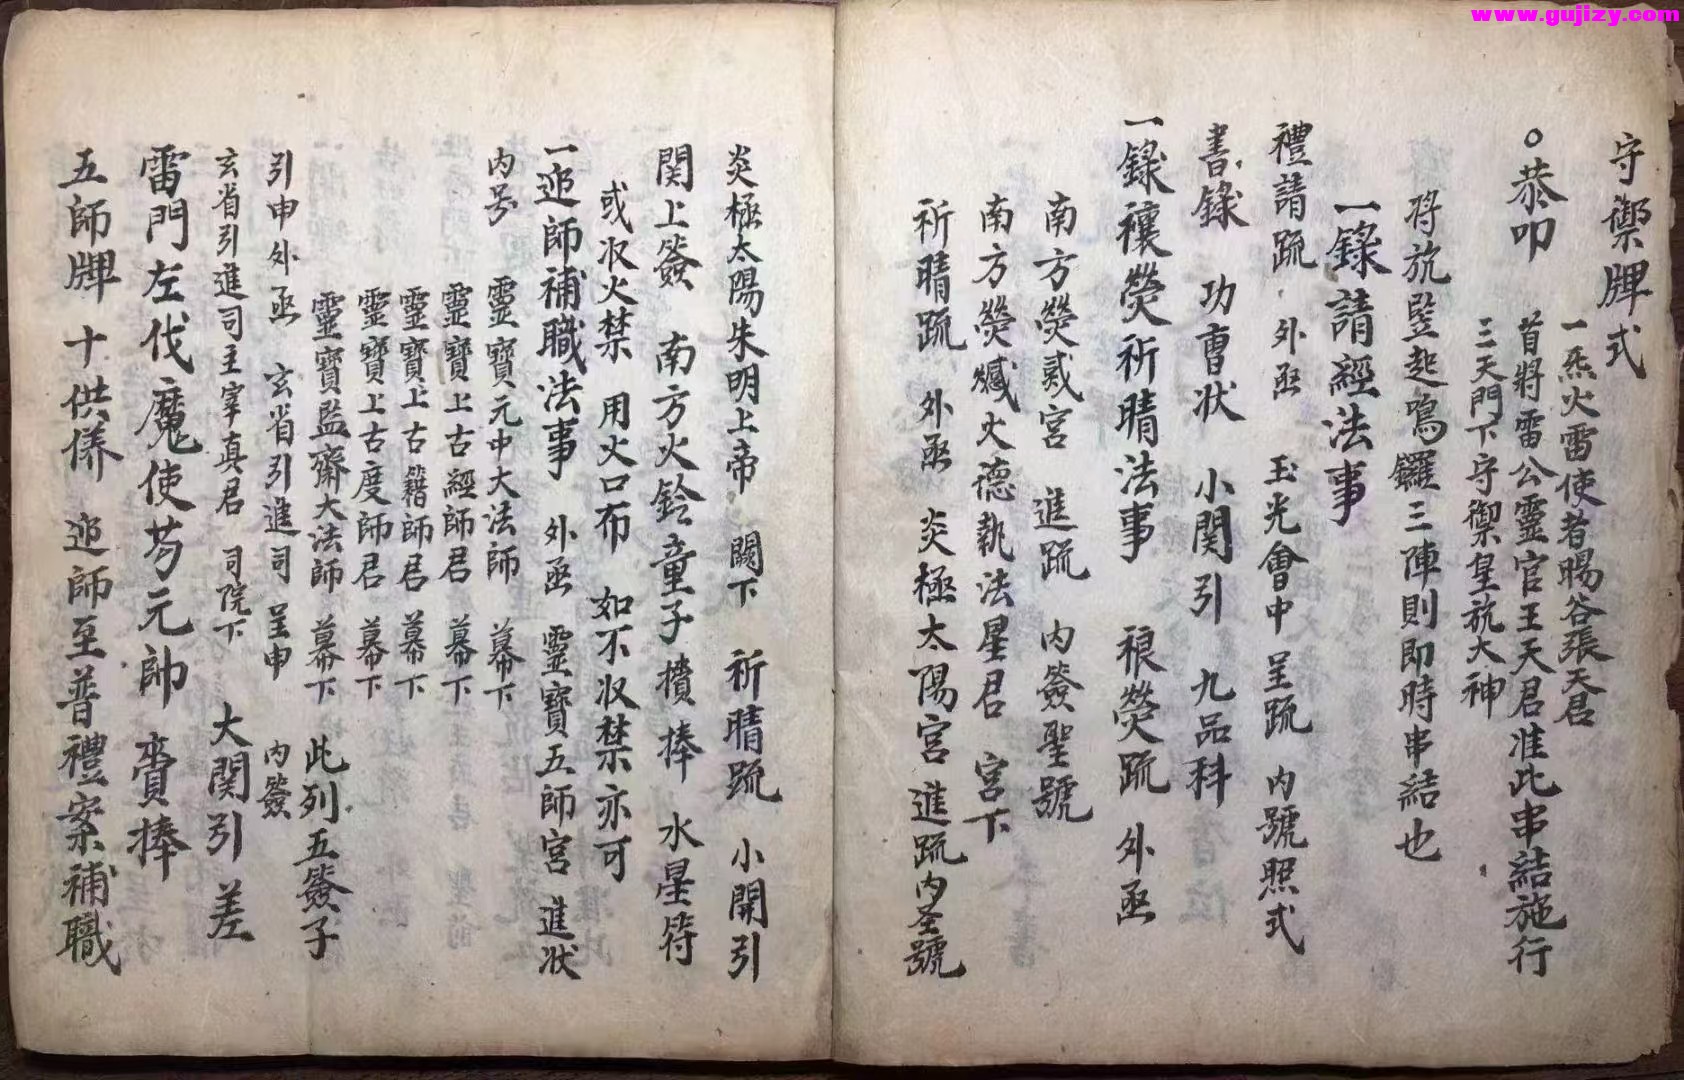 www.gujizy.com
守禦牌式
一炁火雷使者暘谷張天君
○恭叩 首將雷公靈官王天君准此串結施行
三天門下守禦皇旂大神
将旂竪起鳴鑼三陣則即時串結也
一錄請經法事
禮請疏 外函 玉光會中 呈疏 内號照式
書錄 功曹状 小関引 九品科
一錄禳熒祈晴法事 稂熒疏 外函
南方熒惑宮 進疏 内簽聖號
南方熒惑火德執法星君 宮下
祈晴疏 外函 炎極太陽宮進疏内圣號
炎極太陽朱明上帝 闕下 祈晴疏 小開引
関上簽 南方火鈴童子 摃捧 水星符
或収火禁 用火口布 如不収禁亦可
一迎師補職法事 外函 靈寶五師宮 進状
内号 靈寶元中大法師 幕下
靈寶上古經師君 幕下
靈寶上古籍師君 幕下
靈寶上古度師君 幕下
靈寶監齋大法師 幕下 此列五簽子
引申外函 玄省引進司 呈申 内簽
玄省引進司主宰真君 司院下 大関引 差
雷門左伐魔使苟元帥 賫捧
五師牌 十供俻 迎師至普禮案補職